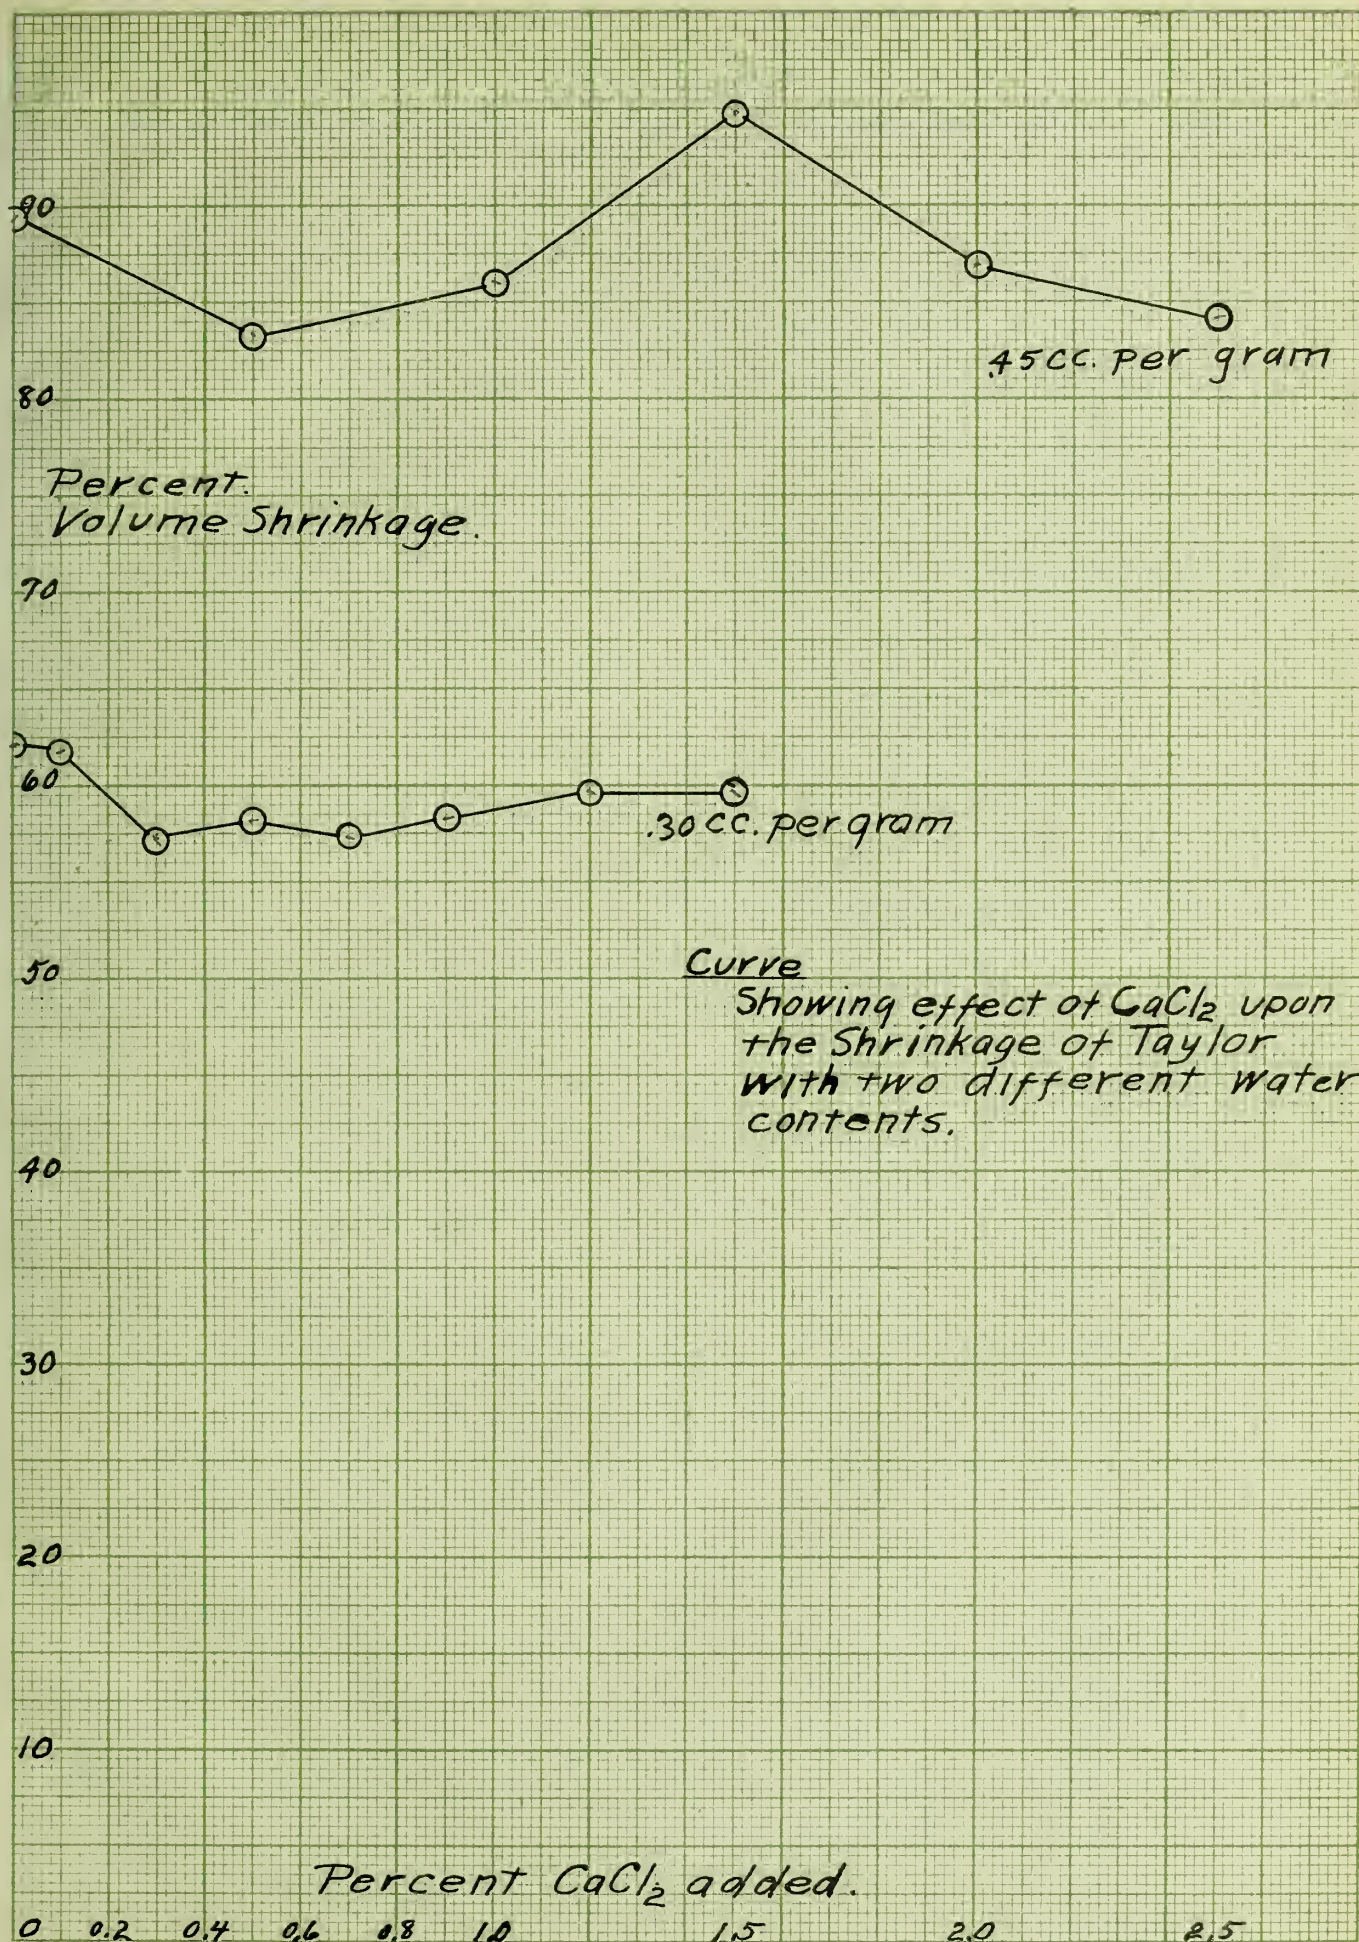 90
.45cc. per gram
80
Percent.
Volume Shrinkage.
70
60
.30cc. per gram
50
Curve
Showing effect of CaCl₂ upon
the Shrinkage of Taylor
with two different Water
contents.
40
30
20
10
Percent CaCl₂ added.
0 0.2 0.4 0.6 0.8 1.0 1.5 2.0 2.5